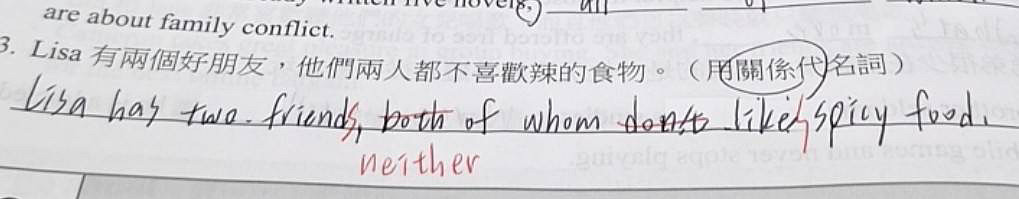 are about family conflict.
3. Lisa 有兩個好朋友，他們兩人都不喜歡辣的食物。（用關係代名詞）
Lisa has two friends, both of whom don't likes spicy food.
neither